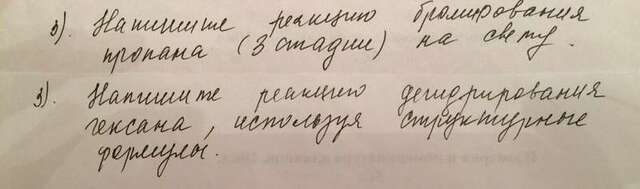 3). Напишите реакцию бромирования
пропана (3 стадии) на свету.
3). Напишите реакцию дегидрирования
гексана, используя структурные
формулы.